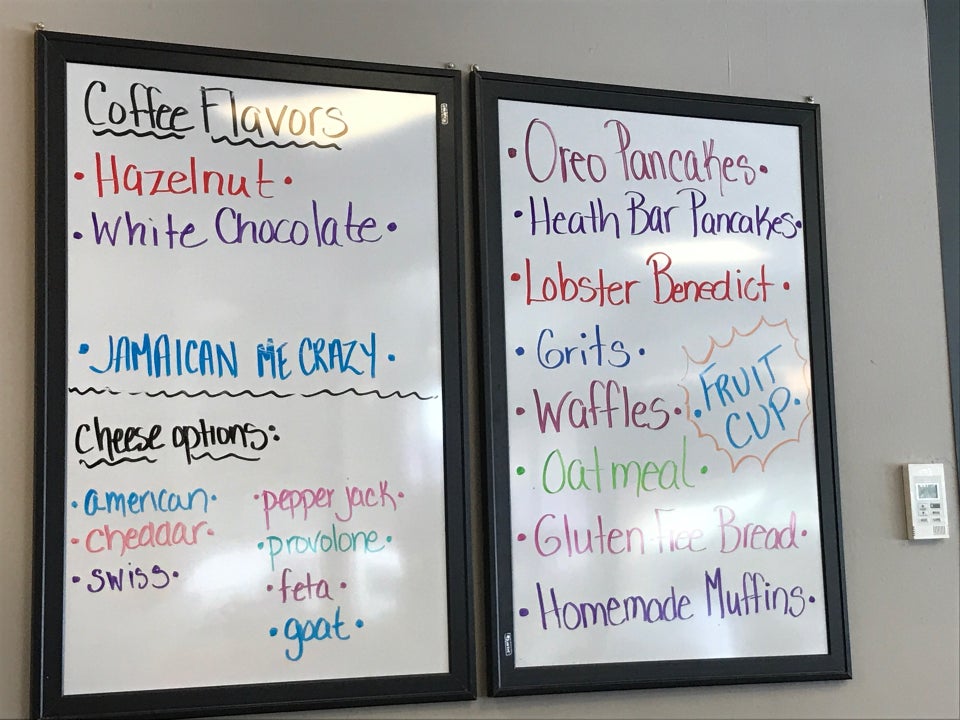 Coffee Flavors
• Hazelnut •
• White Chocolate •
• JAMAICAN ME CRAZY •
Cheese options:
• american •
• cheddar •
• swiss •
• pepper jack •
• provolone •
• feta •
• goat •
• Oreo Pancakes •
• Heath Bar Pancakes •
• Lobster Benedict •
• Grits •
• Waffles •
• Oatmeal •
• Gluten Free Bread •
• Homemade Muffins •
• FRUIT
CUP •